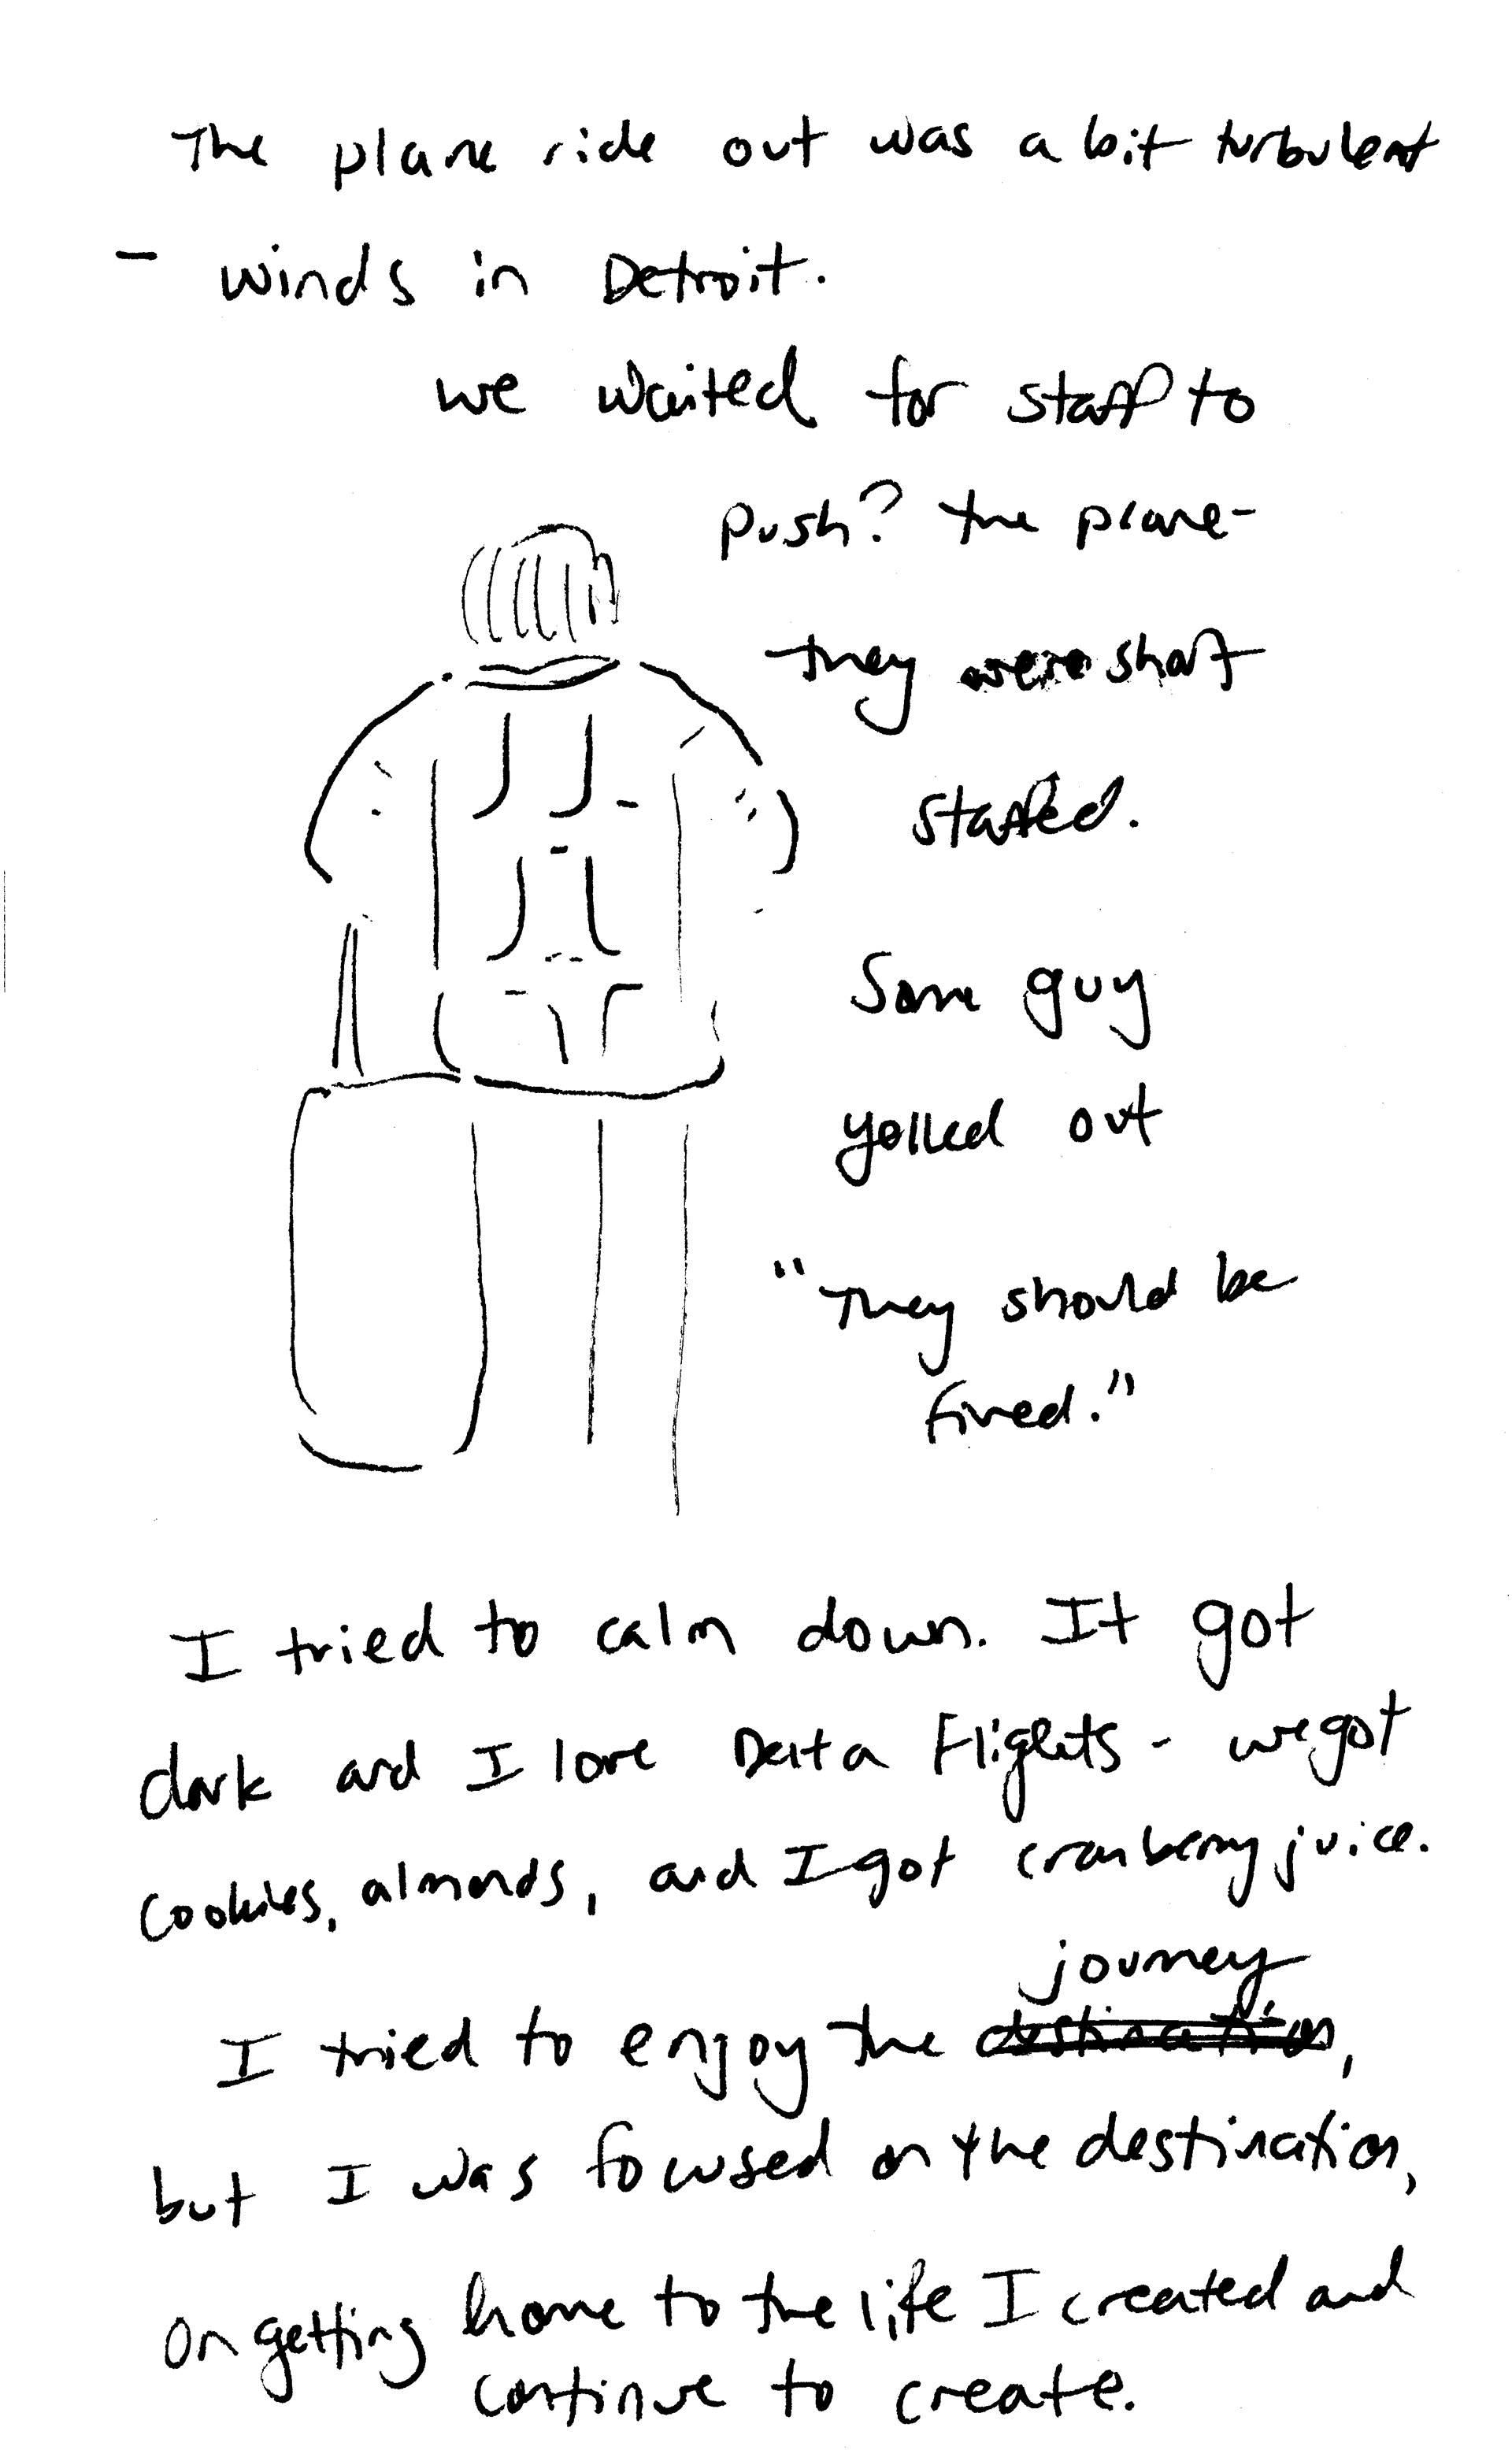 The plane ride out was a bit turbulent
- winds in Detroit.
we waited for staff to
push? the plane-
they were short
staffed.
Some guy
yelled out
"They should be
fired."
I tried to calm down. It got
dark and I love Delta Flights - we got
cookies, almonds, and I got cranberry juice.
journey
I tried to enjoy the destination,
but I was focused on the destination,
on getting home to the life I created and
continue to create.